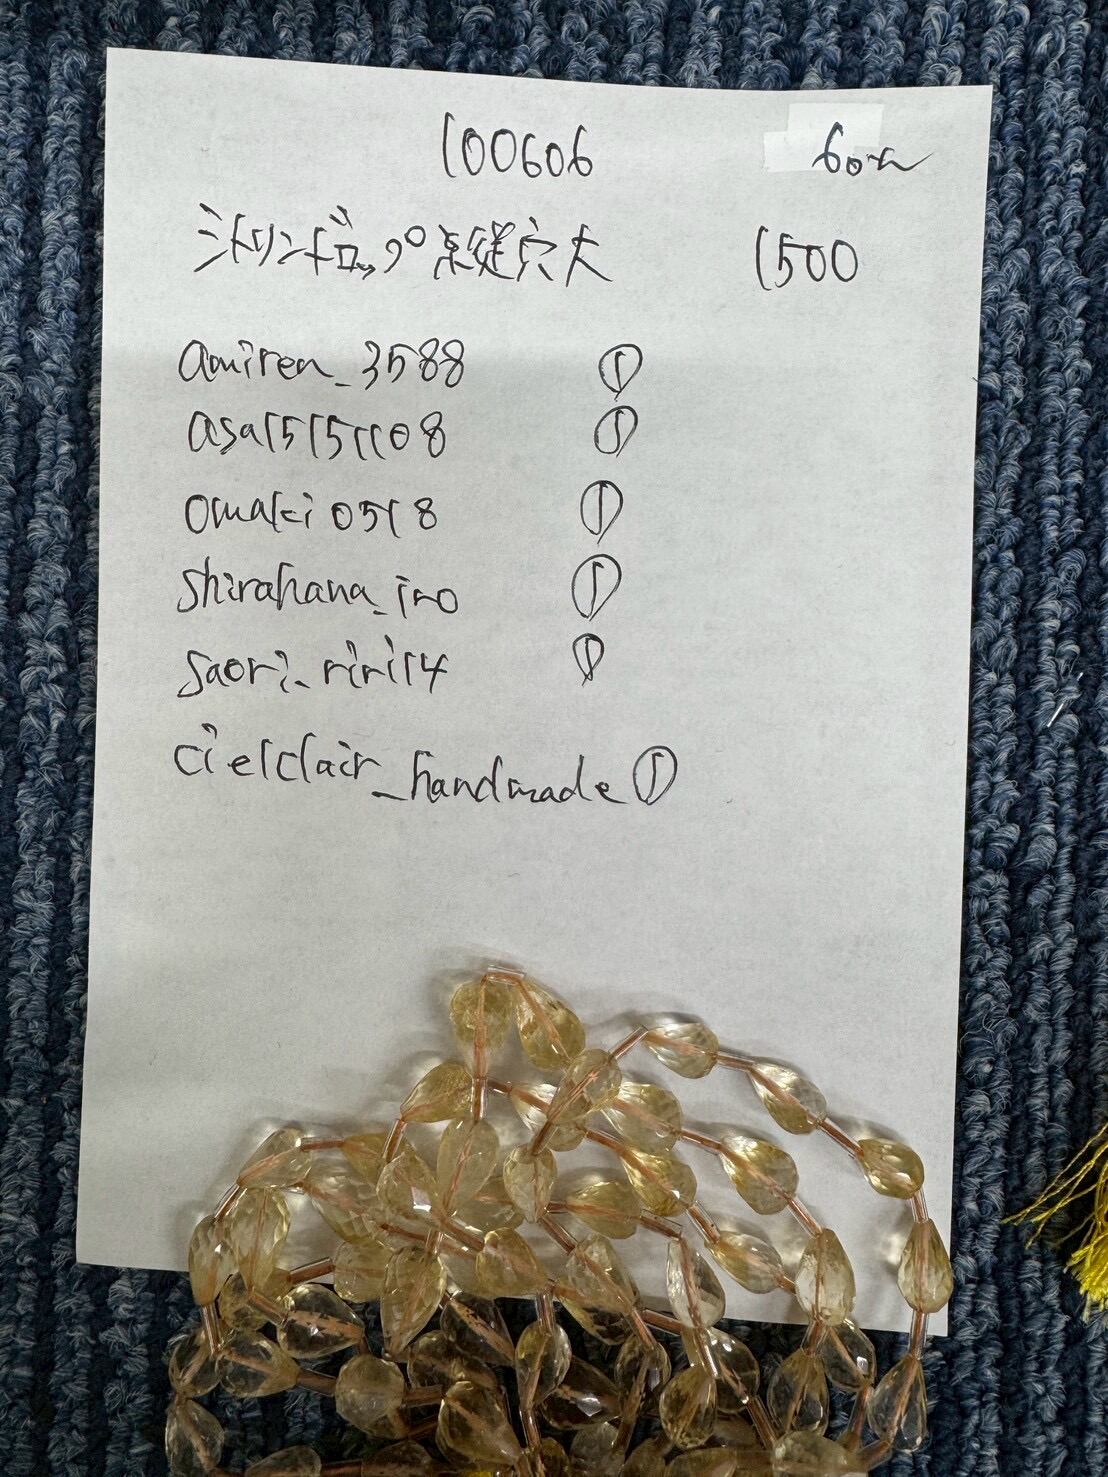 100606
シトリンドロップ 糸縦穴大 1500
amiren_3588 ①
asa15151108 ①
omaki0518 ①
shirahana_iro ①
saori_riri14 ①
cielclair_handmade ①